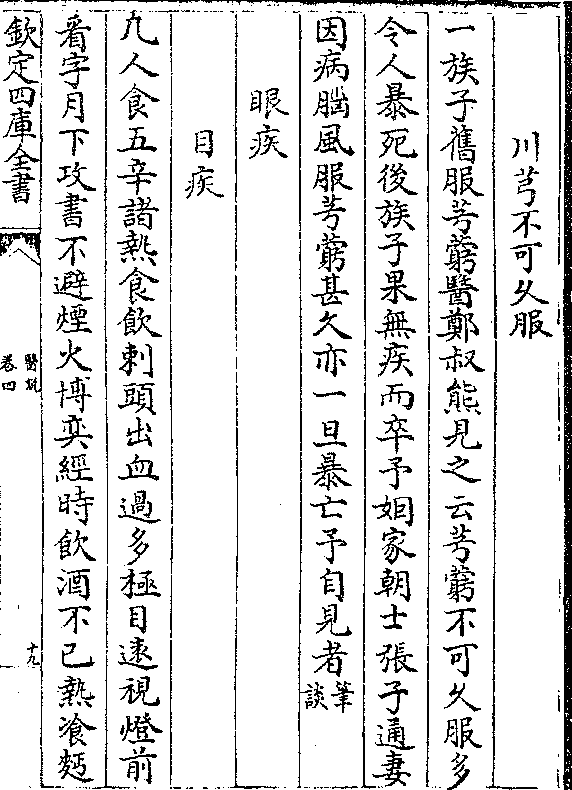 川芎不可久服
一族子舊服芎藭醫鄭叔熊見之云芎藭不可久服多
令人暴死後族子果無疾而卒予姻家朝士張子通妻
因病腦風服芎藭甚久亦一旦暴亡予自見者筆談
眼疾
目疾
凡人食五辛諸熱食飲刺頭出血過多極目逺視燈前
看字月下攻書不避煙火博奕經時飲酒不已熱飡麪
欽定四庫全書
醫說
卷四
十九